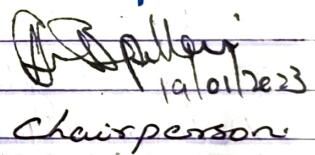 19/01/2023
Chairperson.